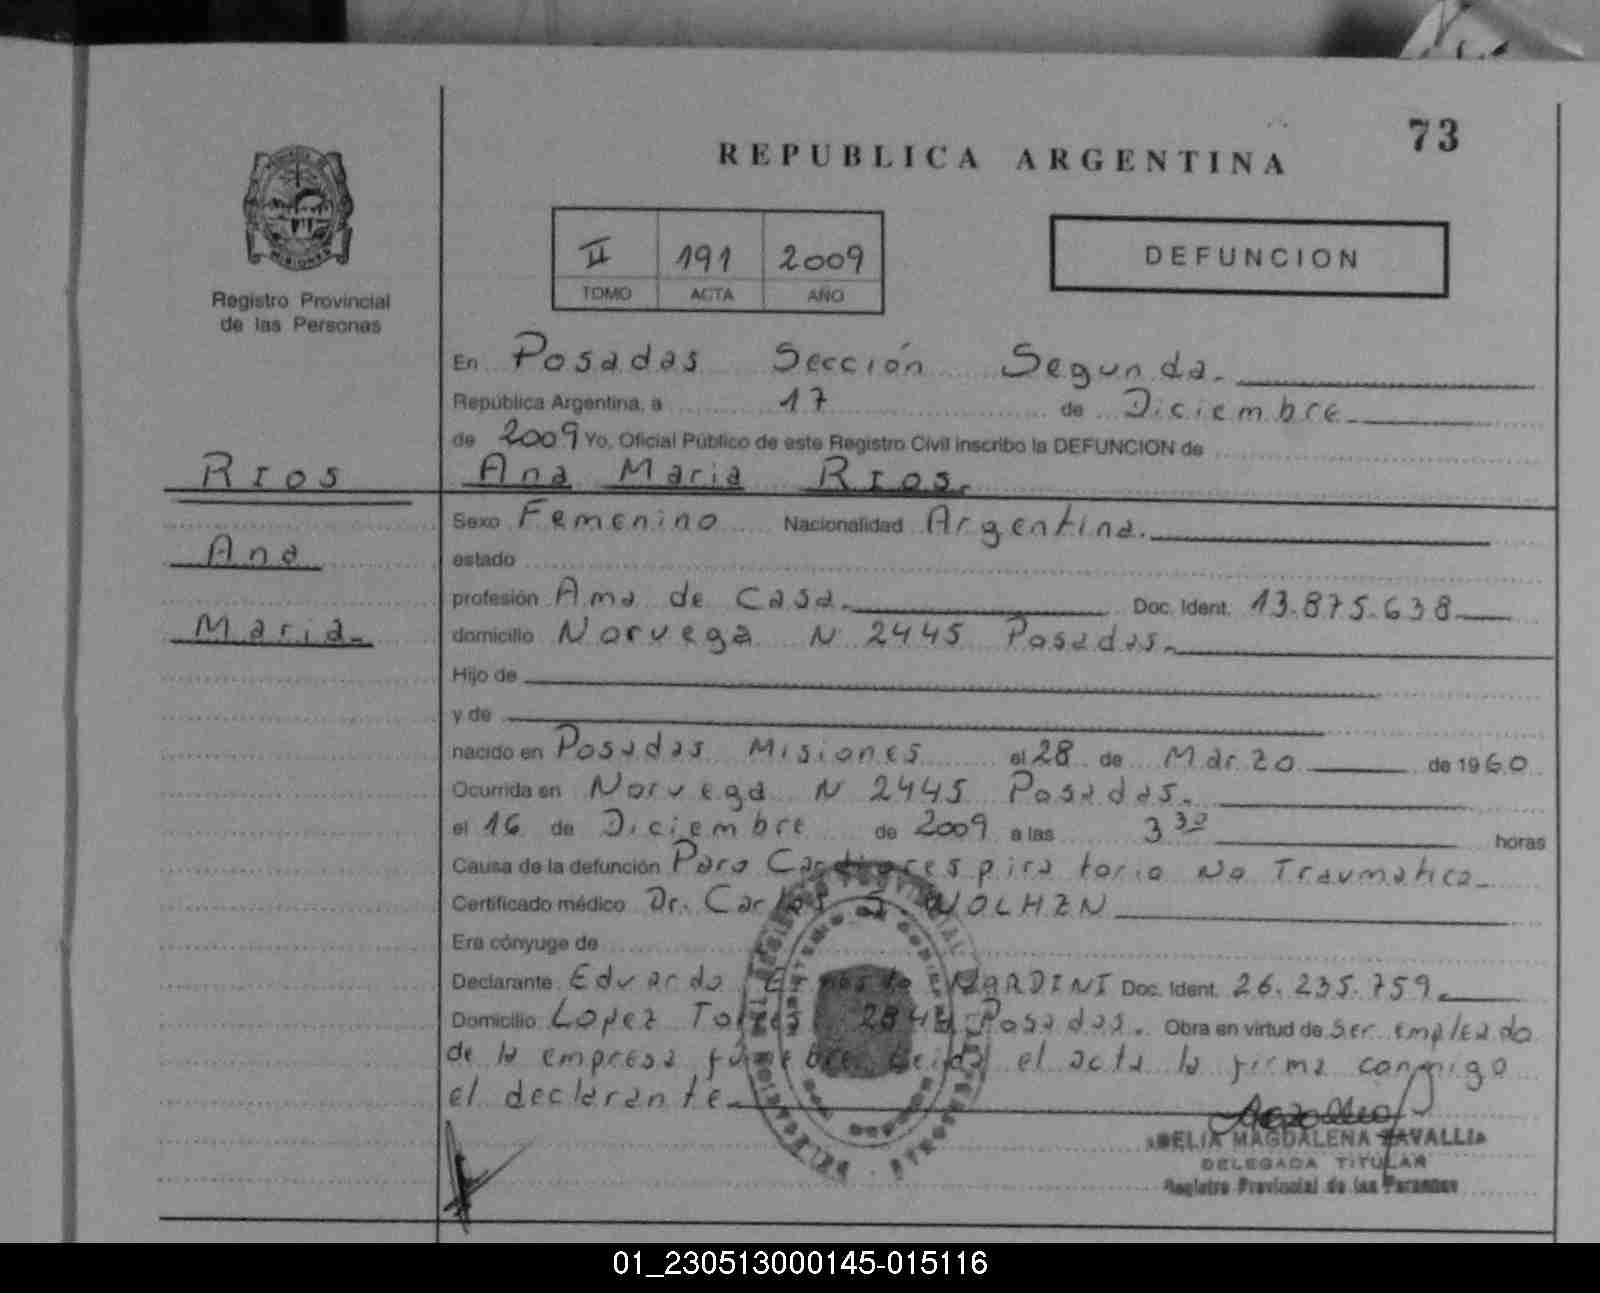 73
REPUBLICA ARGENTINA
II 191 2009
TOMO ACTA AÑO
DEFUNCION
MISIONES
Registro Provincial
de las Personas
En Posadas Sección Segunda.
República Argentina, a 17 de Diciembre
de 2009 Yo, Oficial Público de este Registro Civil inscribo la DEFUNCION de
RIOS
Ana Maria RIOS.
Ana
Maria
Sexo Femenino Nacionalidad Argentina.
estado
profesión Ama de Casa. Doc. Ident. 13.875.638
domicilio Noruega N 2445 Posadas.
Hijo de
y de
nacido en Posadas Misiones el 28 de Marzo de 1960
Ocurrida en Noruega N 2445 Posadas.
el 16 de Diciembre de 2009 a las 3 30 horas
Causa de la defunción Paro Cardiorespiratorio No Traumatico
Certificado médico Dr. Carlos
Era cónyuge de
Declarante Eduardo Ernesto Doc. Ident. 26.235.759
Domicilio Lopez Torres Posadas. Obra en virtud de Ser empleado
de la empresa funebre Leida el acta la firma conmigo
el declarante
DELIA MAGDALENA ZAVALLIA
DELEGADA TITULAR
Registro Provincial de las Personas
01_230513000145-015116